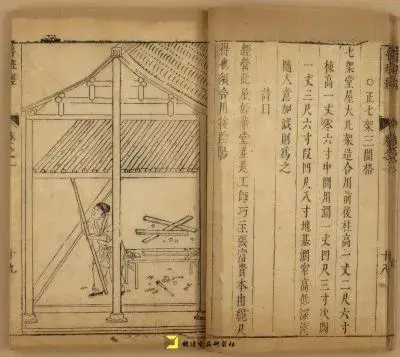 ○正七架三間格
七架堂屋大凡架造合用前後柱高一丈二尺六寸
棟高一丈零六寸中間用濶一丈四尺三寸次濶
一丈三尺六寸段四尺八寸地基濶窄高低深淺
隨人意加減則為之
詩曰
經營此屋好華堂並是工師巧主張富貴本由繩尺
得也須合用按陰陽
十八
魯班經
卷之一
十九
明清家具研習社